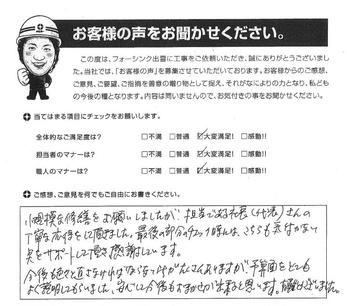 お客様の声をお聞かせください。
この度は、フォーシンク出雲に工事をご依頼いただき、誠にありがとうございました。
当社では、「お客様の声」を募集させていただいております。お客様からのご感想、
ご意見、ご要望、ご指摘を善意の贈り物として捉え、それがなによりの力となり、私ども
の今後の糧となります。内容は問いませんので、お気付きの事をお聞かせください。
●当てはまる項目にチェックをお願いします。
全体的なご満足度は？ □不満 □普通 ☑大変満足! □感動!!
担当者のマナーは？ □不満 □普通 ☑大変満足! □感動!!
職人のマナーは？ □不満 □普通 ☑大変満足! □感動!!
●ご感想、ご意見を何でもご自由にお書きください。
小規模な修繕をお願いしましたが、担当である社長(代表)さんの
丁寧な応待をして頂きました。最後の部分のチェック時には、こちらも気なかない
臭をサポートして頂き感謝しています。
今後も色々と直さなければならない所がたくさんありますが、予算面をとても
よく説明してもらいました。安心して今後もおまかせが出来ると思います。